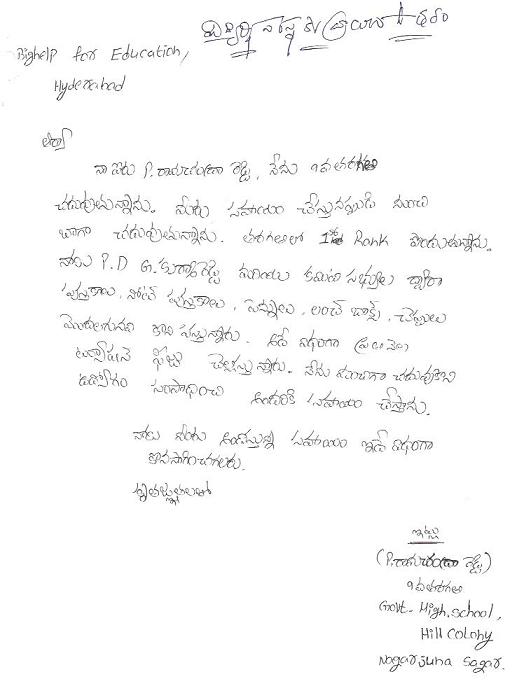 Bighelp for Education,
Hyderabad
నా పేరు P. రామచంద్రా రెడ్డి, నేను 9వ తరగతి
చదువుతున్నాను. మీరు సహాయం చేస్తున్నప్పటి నుంచి
బాగా చదువుతున్నాను. తరగతిలో 1st Rank పొందుతున్నాను.
నాకు P.D G. రెడ్డి మరియు కమిటి సభ్యుల ద్వారా
పుస్తకాలు, నోట్ పుస్తకాలు, పెన్నులు, లంచ్ బాక్స్, చెప్పులు
మొదలగునవి ఇస్తున్నారు. అదే విధంగా ప్రతి నెల
ట్యూషన్ ఫీజు చెల్లిస్తున్నారు. నేను బాగా చదువుకొని
ఉద్యోగం సంపాదించి ఇతరులకి సహాయం చేస్తాను.
నాకు మీరు అందిస్తున్న సహాయం ఇదే విధంగా
కొనసాగించగలరు.
కృతజ్ఞతలతో
ఇట్లు
(P. రామచంద్రా రెడ్డి)
9వ తరగతి
Govt. High. School,
Hill Colony
Nagarjuna Sagar.